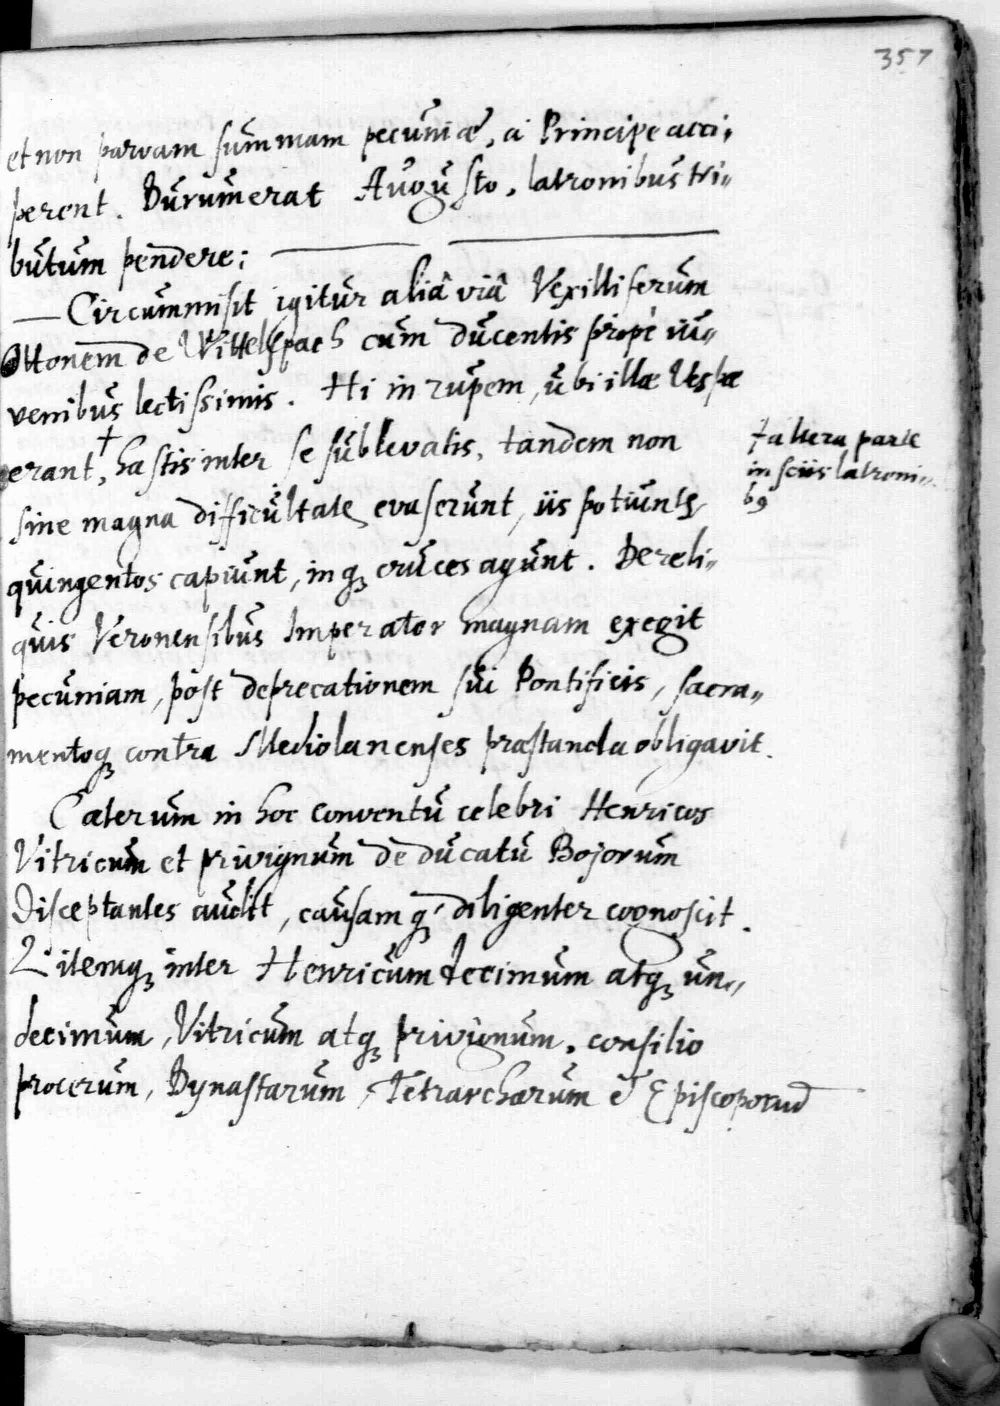 357
et non parvam summam pecuniæ, à Principe acci„
perent. Durum erat Augusto, latronibus tri„
butum pendere;
Circummisit igitur aliâ viâ Vexilliferum
Ottonem de Wittelspach cum ducentis propè iu„
venibus lectissimis. Hi in rupem, ubi illæ Vespæ
erant,† hastis inter se sublevatis, tandem non
†altera parte
insciis latroni„
b9
sine magna difficultate evaserunt, iis potiunte,
quingentos capiunt, inq; cruces agunt. De reli„
quis Veronensibus Imperator magnam exegit
pecuniam, post deprecationem sui Pontificis, sacra„
mentoq; contra Mediolanenses præstanda obligavit.
Cæterum in hoc conventu celebri Henricos
Vitricum et privignum de ducatu Bojorum
Disceptantes audit, causam q; diligenter cognoscit.
Litemq; inter Henricum decimum atq; un„
decimum, Vitricum atq; privignum, consilio
procerum, Dynastarum, Tetrarcharum & Episcoporum